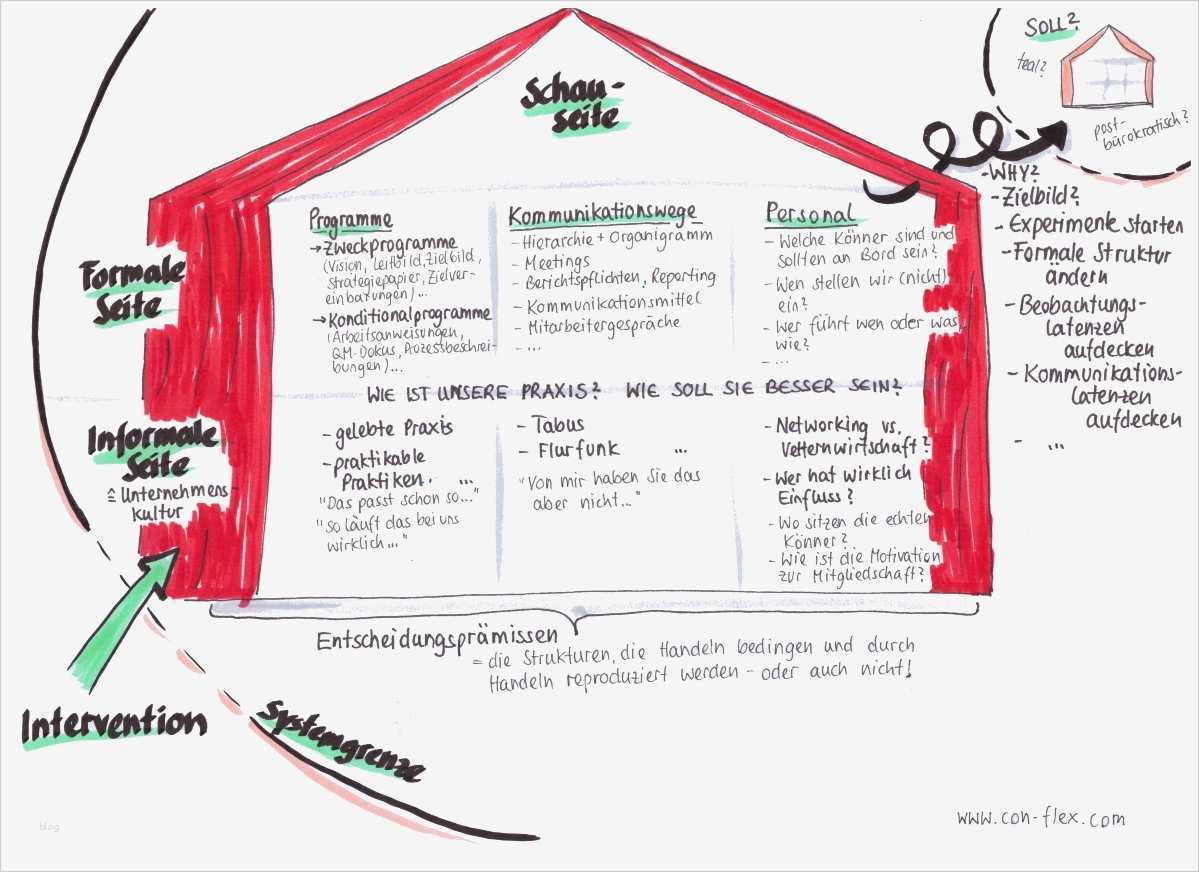 SOLL?
teal?
post-
bürokratisch?
Schau-
seite
Formale
Seite
Programme
→ Zweckprogramme
(Vision, Leitbild, Zielbild,
Strategiepapier, Zielver-
einbarungen)...
→ Konditionalprogramme
(Arbeitsanweisungen,
QM-Dokus, Prozessbeschrei-
bungen)...
Kommunikationswege
- Hierarchie + Organigramm
- Meetings
- Berichtspflichten, Reporting
- Kommunikationsmittel
- Mitarbeitergespräche
- ...
Personal
- Welche Könner sind und
sollten an Bord sein?
- Wen stellen wir (nicht)
ein?
- Wer führt wen oder was,
wie?
- ...
- WHY?
- Zielbild?
- Experimente starten
- Formale Struktur
ändern
- Beobachtungs-
latenzen
aufdecken
- Kommunikations-
latenzen
aufdecken
- ...
WIE IST UNSERE PRAXIS? WIE SOLL SIE BESSER SEIN?
Informale
Seite
≙ Unternehmens-
kultur
- gelebte Praxis
- praktikable
Praktiken. ...
"Das passt schon so..."
"So läuft das bei uns
wirklich..."
- Tabus
- Flurfunk ...
"Von mir haben Sie das
aber nicht..."
- Networking vs.
Vetternwirtschaft?
- Wer hat wirklich
Einfluss?
- Wo sitzen die echten
Könner?
- Wie ist die Motivation
zur Mitgliedschaft?
Entscheidungsprämissen
= die Strukturen, die Handeln bedingen und durch
Handeln reproduziert werden - oder auch nicht!
Intervention
Systemgrenze
www.con-flex.com
blog